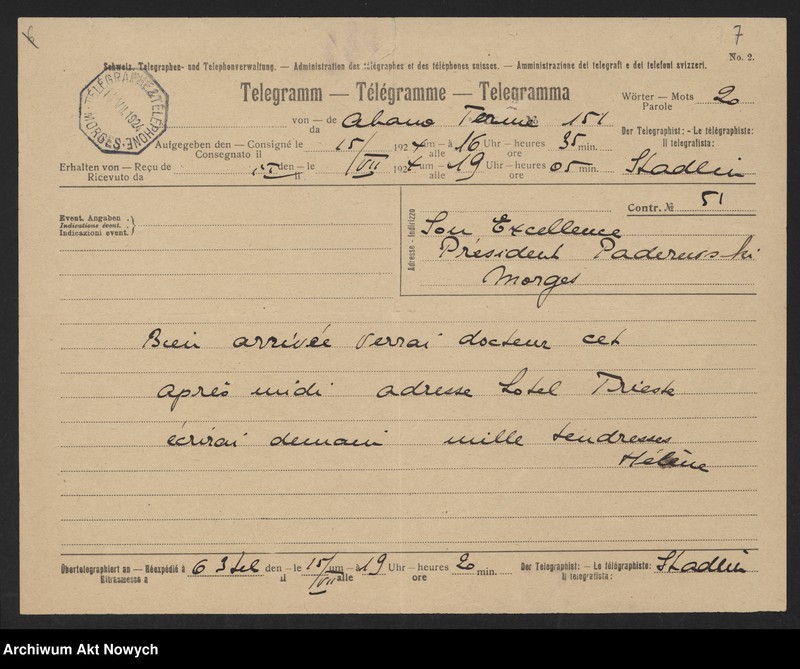 7
Schweiz. Telegraphen- und Telephonverwaltung. — Administration des télégraphes et des téléphones suisses. — Amministrazione dei telegrafi e dei telefoni svizzeri.
No. 2.
Telegramm — Télégramme — Telegramma
Wörter — Mots 20
Parole
TÉLÉGRAPHE & TÉLÉPHONE
VII 1924
MORGES
von — de Abano Terme 151
da
Der Telegraphist: - Le télégraphiste:
Il telegrafista:
Stadlin
Aufgegeben den — Consigné le 15/VII 1924 um — à 16 Uhr — heures 35 min.
Consegnato il alle ore
Erhalten von — Reçu de den — le 1924 um — à 19 Uhr — heures 05 min.
Ricevuto da il alle ore
Contr. № 51
Event. Angaben
Indications évent.
Indicazioni event.
Adresse - Indirizzo
Son Excellence
Président Paderewski
Morges
Bien arrivée verrai docteur cet
après midi adresse hotel Trieste
écrirai demain mille tendresses
Hélène
Übertelegraphiert an — Réexpédié à 6 3 tel den — le 15/VII um — à 19 Uhr — heures 20 min.
Ritrasmesso a il alle ore
Der Telegraphist: — Le télégraphiste: Stadlin
Il telegrafista:
Archiwum Akt Nowych